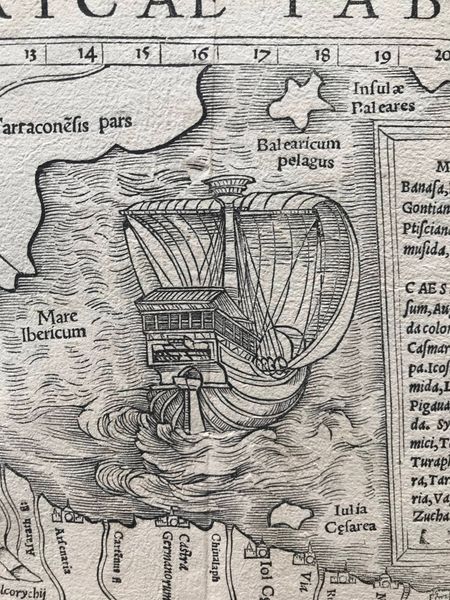 13 14 15 16 17 18 19 20
Tarraconẽsis pars
Insulæ
Paleares
Balearicum
pelagus
Mare
Ibericum
Banasa,
Gontian
Ptiscian
musida,
CAES
sum, Au
da colon
Casmar
pa. Icos
mida, L
Pigaud
da. Sy
mici, T
Turaph
ra, Tar
ria, Va
Zucha
Iulia
Cęsarea
Arsenaria
Cartẽnę fl
Castra
Germanorum
Chinalaph
Iol C